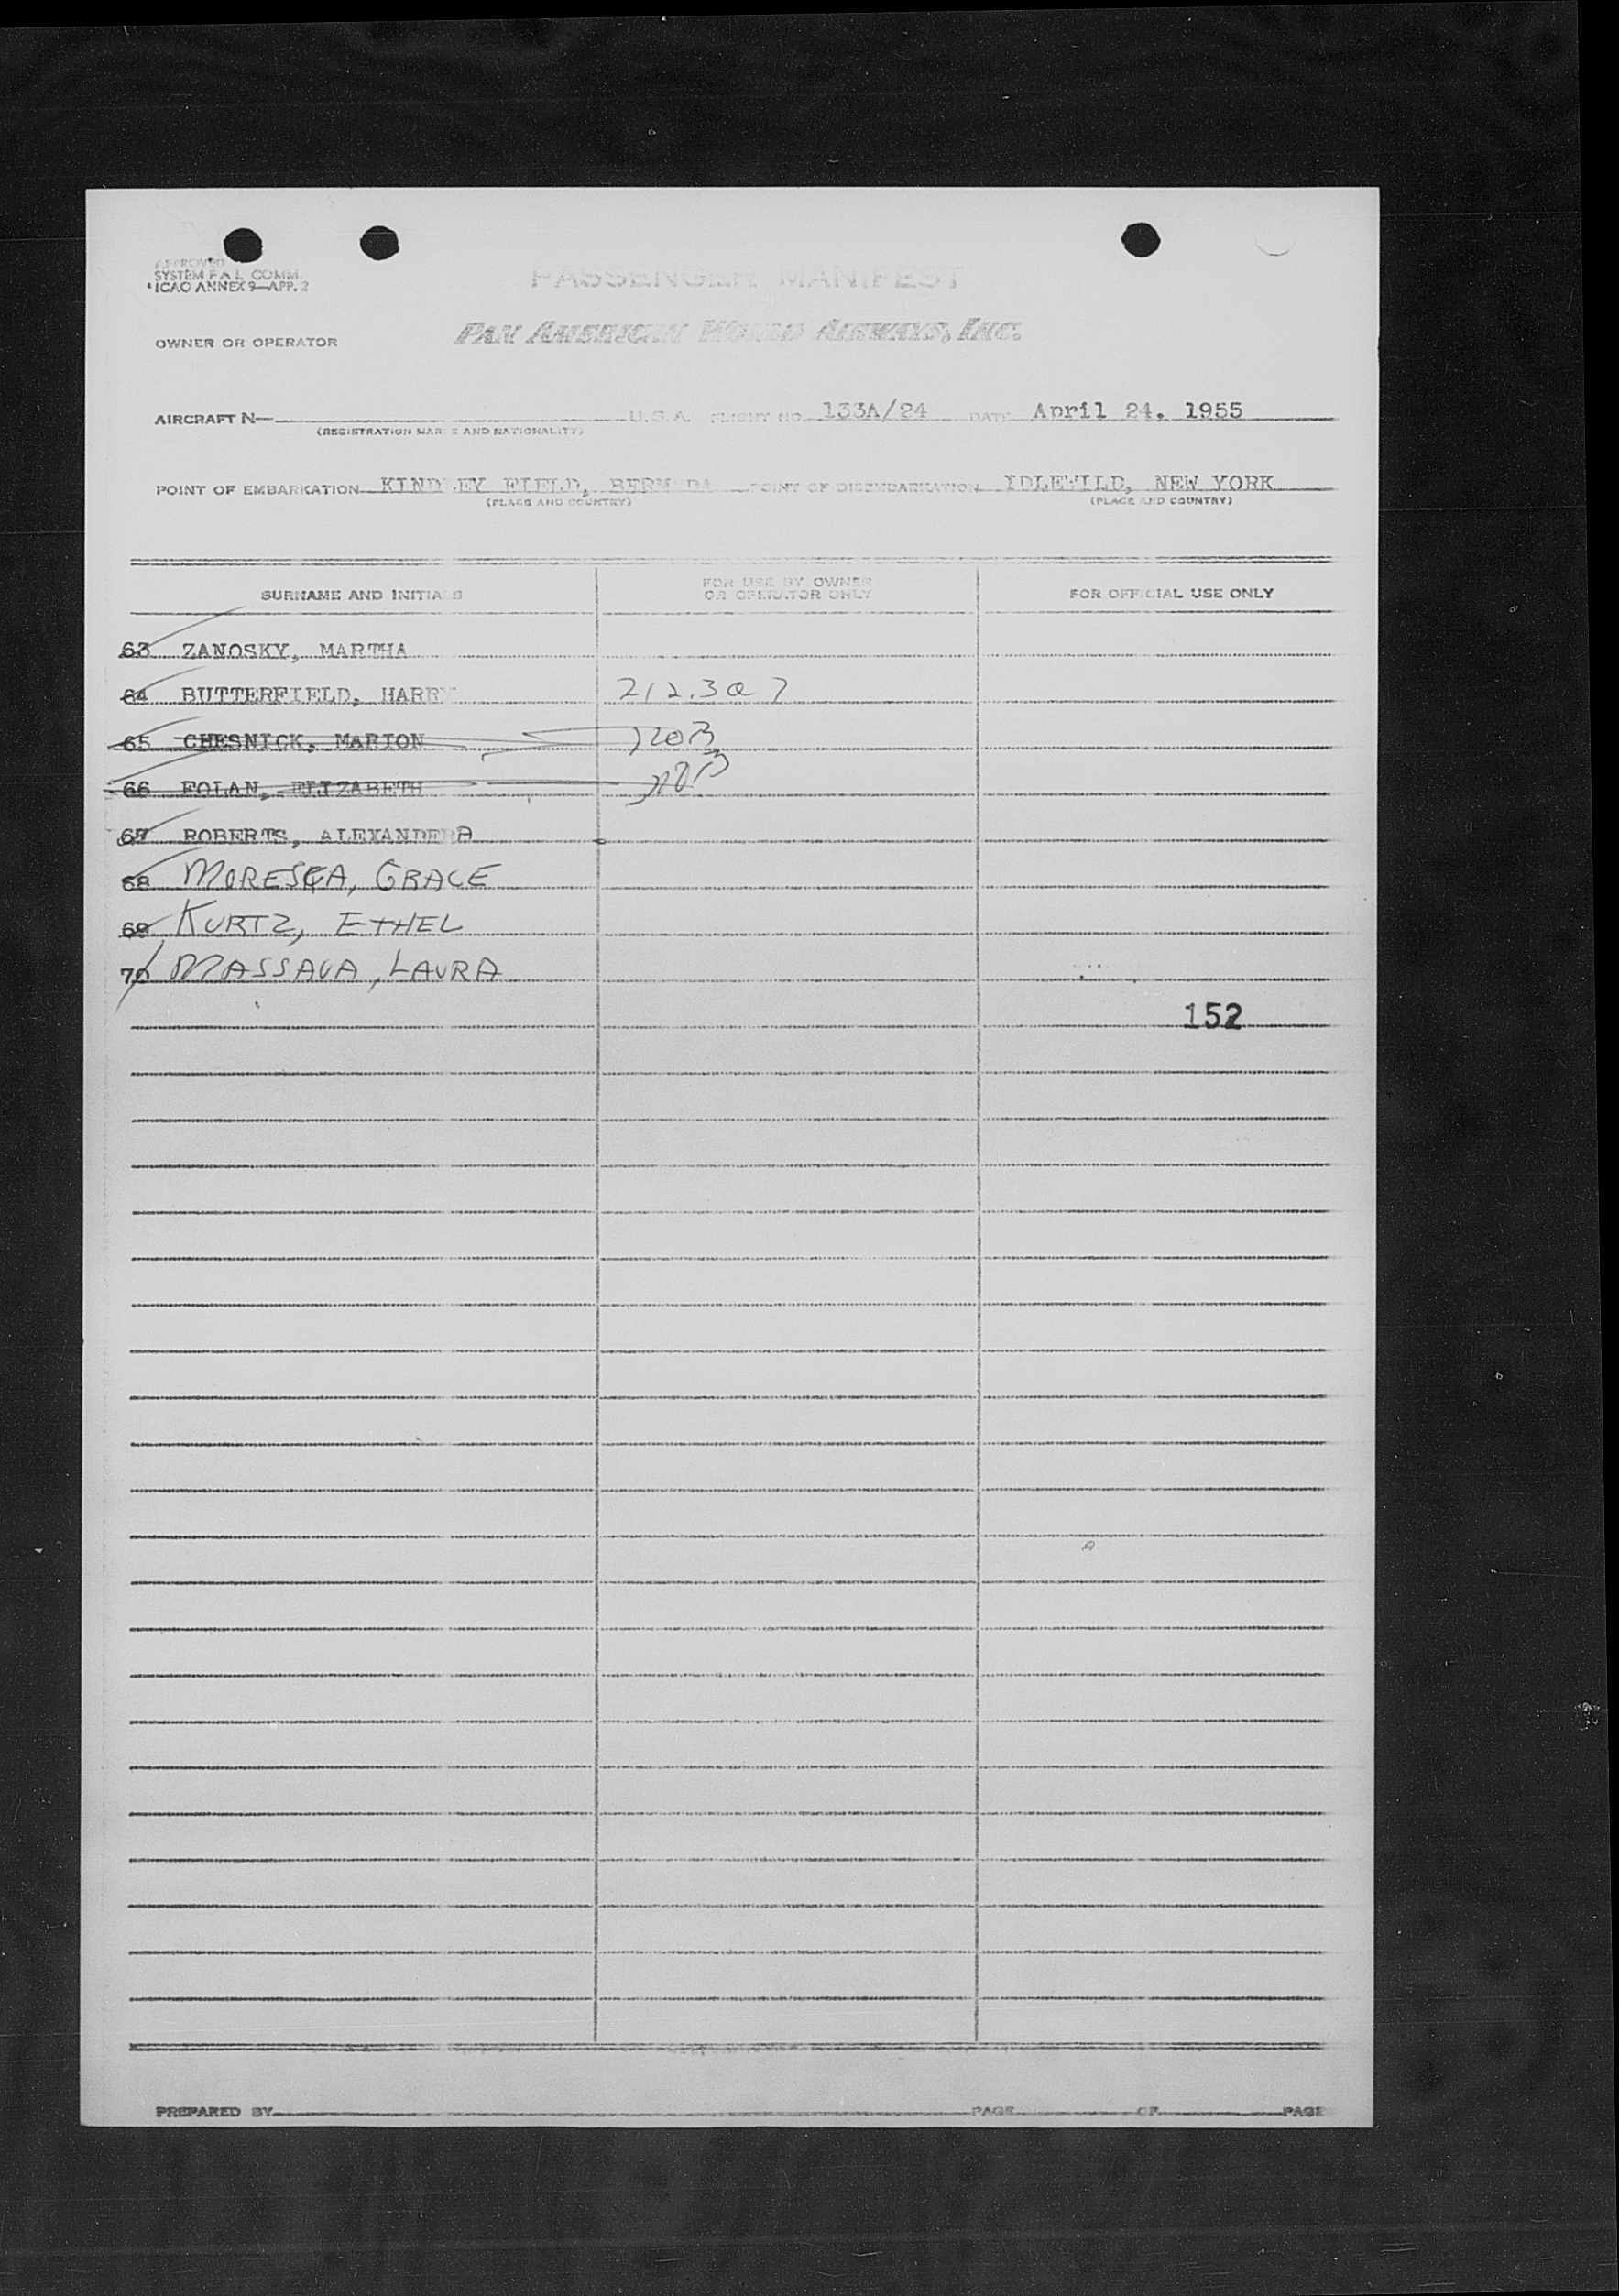 APPROVED
SYSTEM F A L COMM.
ICAO ANNEX 9—APP. 2
PASSENGER MANIFEST
OWNER OR OPERATOR PAN AMERICAN WORLD AIRWAYS, INC.
AIRCRAFT N— U.S.A. FLIGHT NO. 133A/24 DATE April 24, 1955
(REGISTRATION MARKS AND NATIONALITY)
POINT OF EMBARKATION KINDLEY FIELD, BERMUDA POINT OF DISEMBARKATION IDLEWILD, NEW YORK
(PLACE AND COUNTRY) (PLACE AND COUNTRY)
SURNAME AND INITIALS FOR USE BY OWNER OR OPERATOR ONLY FOR OFFICIAL USE ONLY
63 ZANOSKY, MARTHA
64 BUTTERFIELD, HARRY
65 CHESNICK, MARION NOB
66 FOLAN, ELIZABETH NOB
67 ROBERTS, ALEXANDERA
68 MORESCA, GRACE
69 KURTZ, ETHEL
70 MASSAUA, LAURA
152
PREPARED BY PAGE OF PAGE